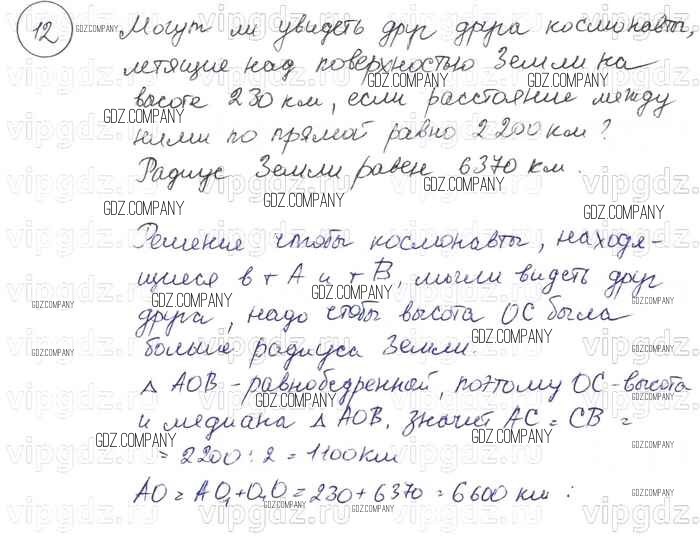 12 Могут ли увидеть друг друга космонавты,
летящие над поверхностью Земли на
высоте 230 км, если расстояние между
ними по прямой равно 2200 км?
Радиус Земли равен 6370 км.
Решение чтобы космонавты, находя-
щиеся в т A и т B, могли видеть друг
друга, надо чтобы высота OC была
больше радиуса Земли.
△ AOB - равнобедренный, поэтому OC - высота
и медиана △ AOB, значит AC = CB =
= 2200 : 2 = 1100 км
AO = AO₁ + O₁O = 230 + 6370 = 6600 км :